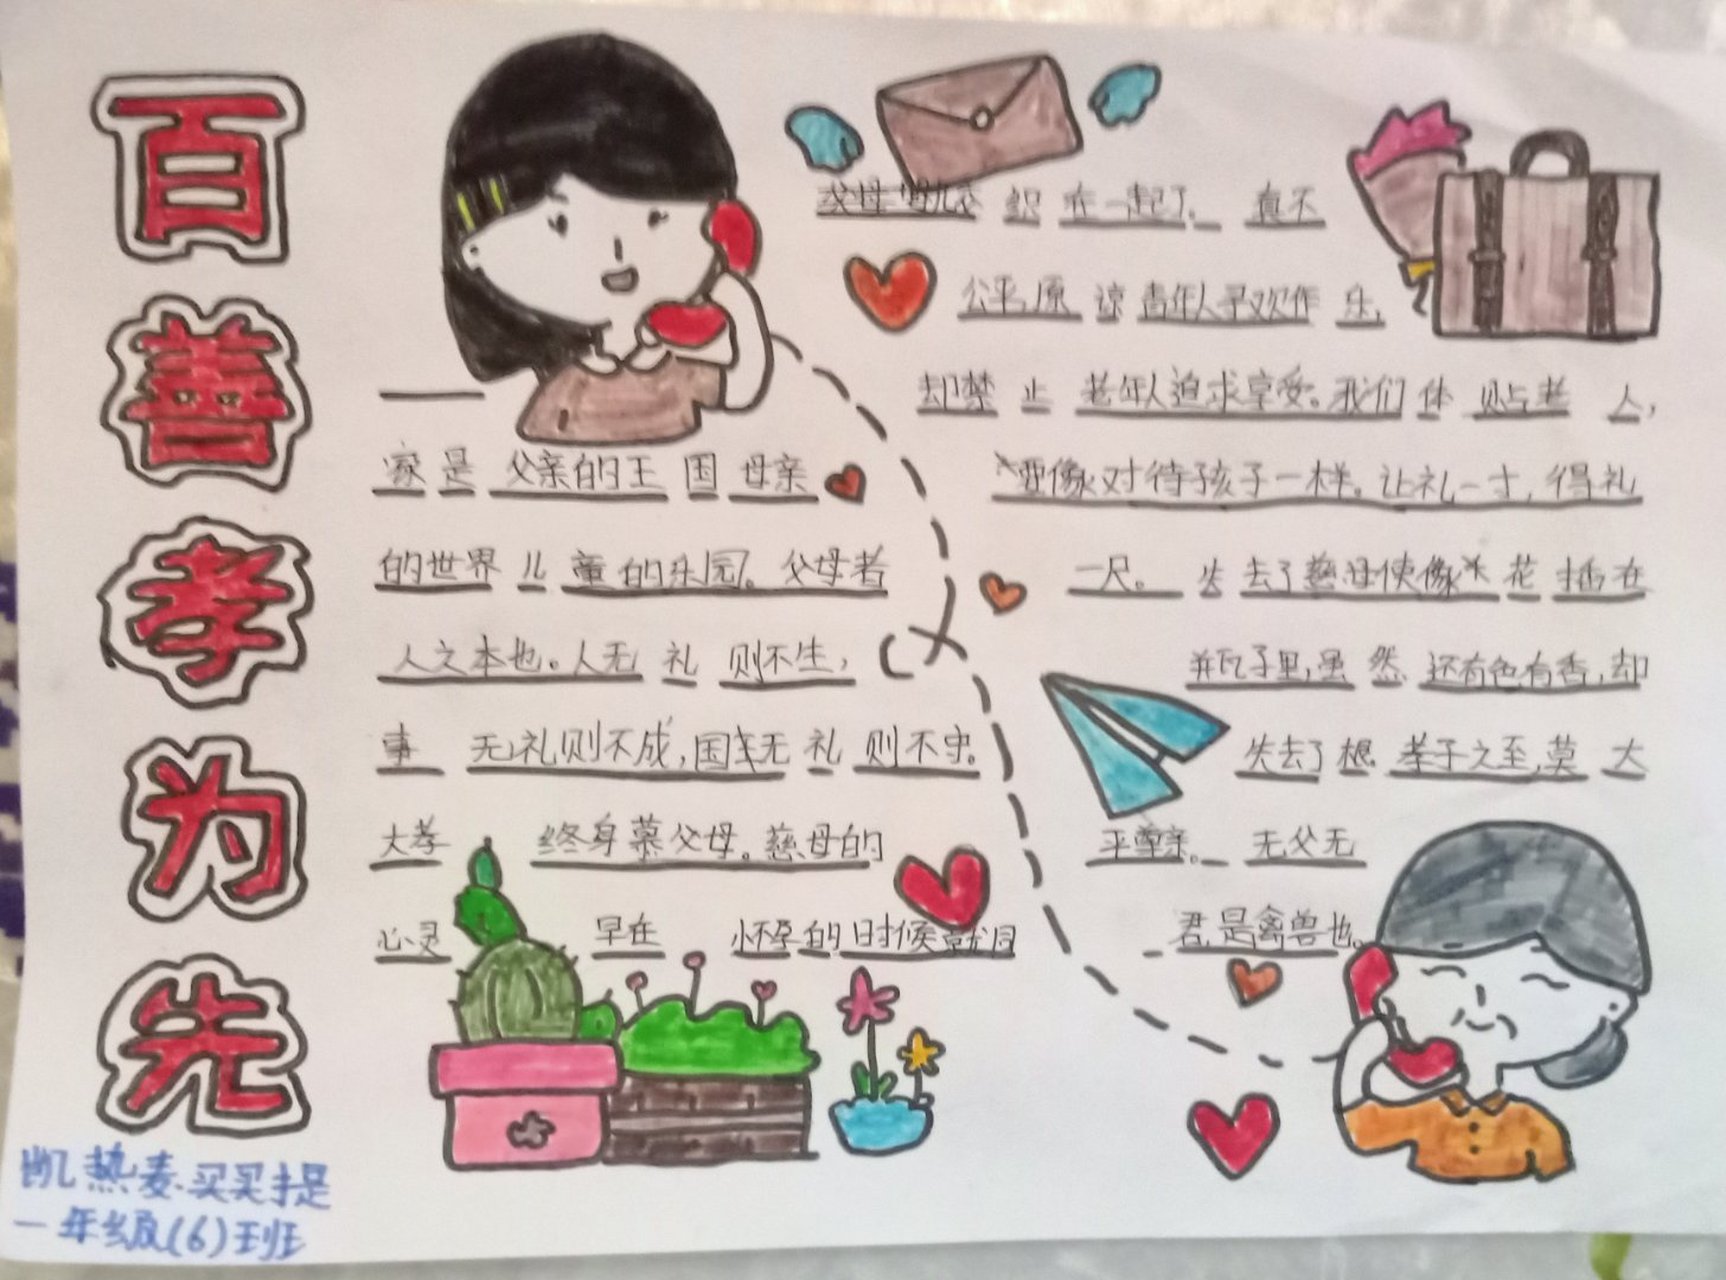 百善孝为先
家是父亲的王国母亲
的世界儿童的乐园。父母者
人之本也。人无礼则不生,
事无礼则不成,国家无礼则不宁。
大孝终身慕父母。慈母的
心灵早在怀孕的时候就同
交织在一起了。真不
公平,原谅青年人寻欢作乐,
却禁止老年人追求享受。我们体贴老人,
要像对待孩子一样。让礼一寸,得礼
一尺。失去了慈母便像花插在
瓶子里,虽然还有色有香,却
失去了根。孝子之至,莫大
乎尊亲。无父无
君,是禽兽也。
凯热麦·买买提
一年级(6)班